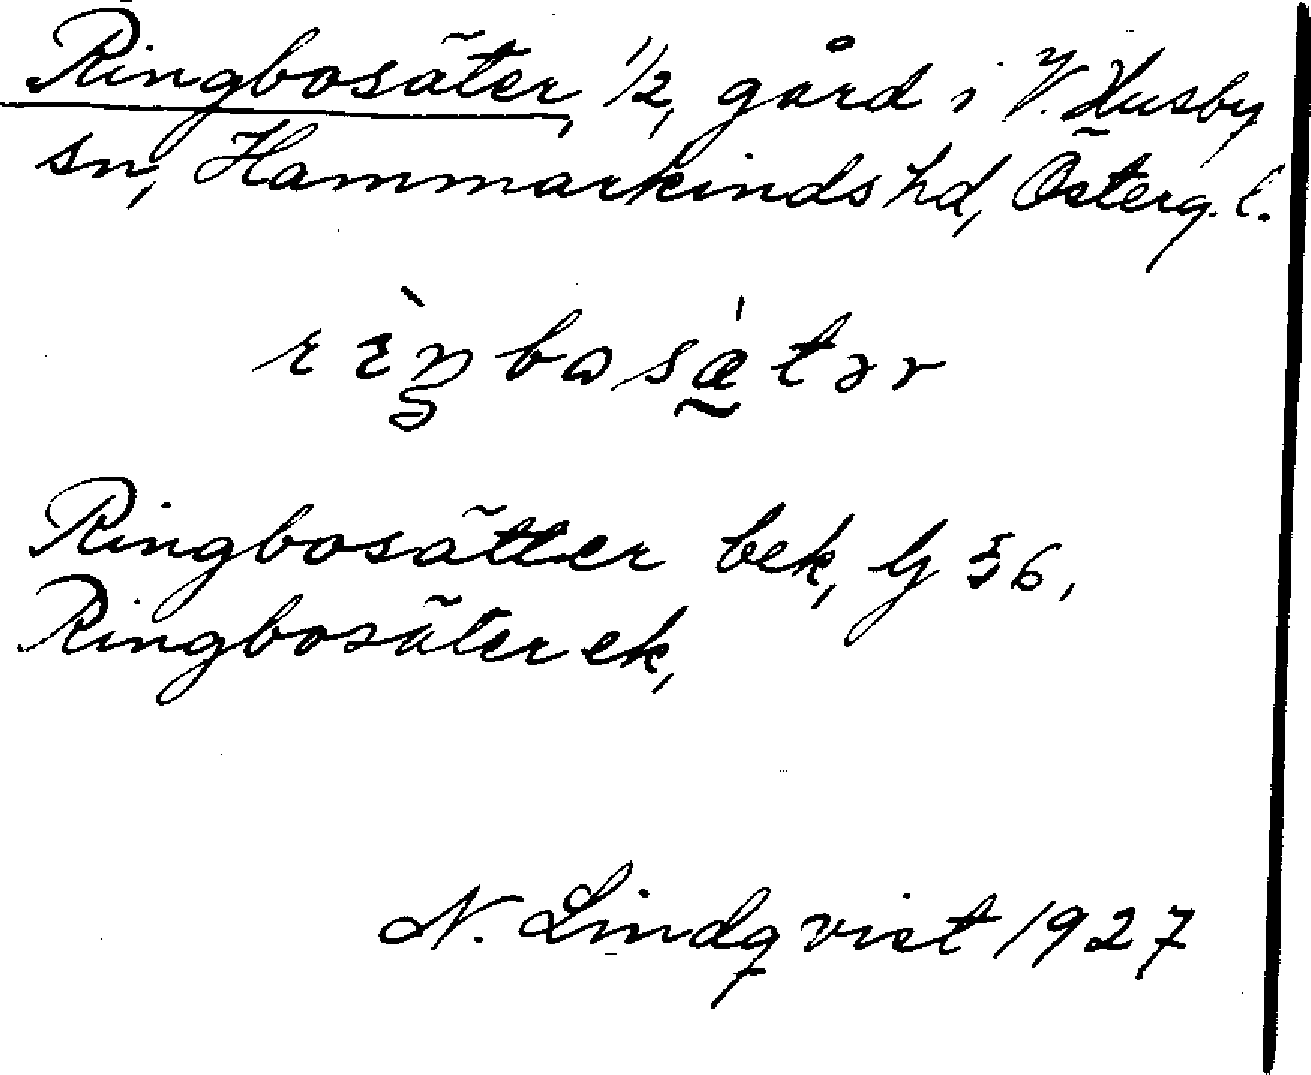 Ringbosäter, 1/2, gård i V. Husby
sn, Hammarkinds hd, Österg. l.
Ringbosätter bek, G 36,
Ringbosäter ek,
N. Lindqvist 1927